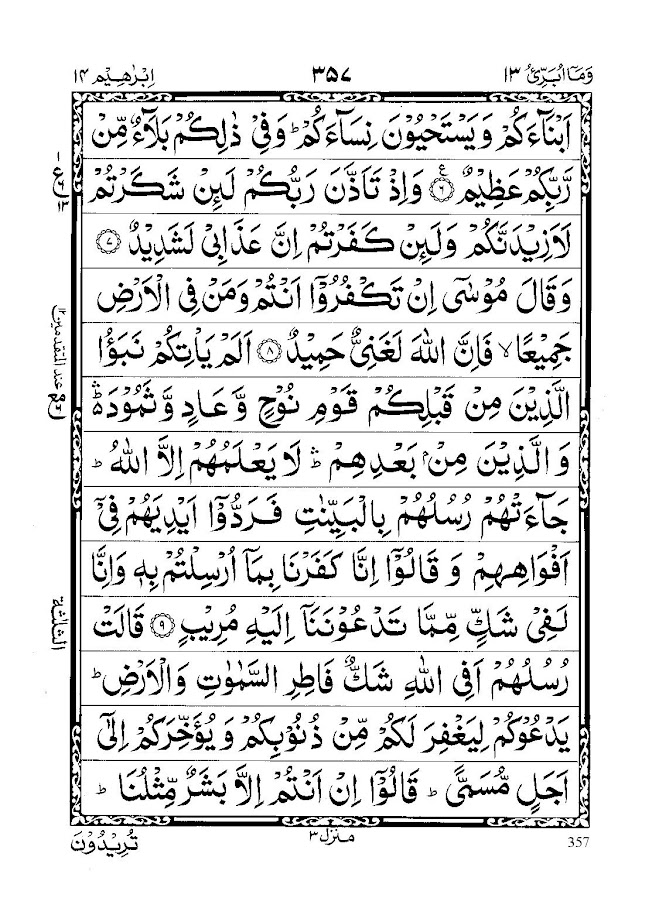 وَمَآ اُبَرِّئُ ١٣
٣٥٧
اِبْرٰهِيْم ١٤
اَبْنَآءَكُمْ وَيَسْتَحْيُوْنَ نِسَآءَكُمْ ؕ وَفِيْ ذٰلِكُمْ بَلَآءٌ مِّنْ
رَّبِّكُمْ عَظِيْمٌ ۧ ﴿٦﴾ وَاِذْ تَاَذَّنَ رَبُّكُمْ لَئِنْ شَكَرْتُمْ
لَاَزِيْدَنَّكُمْ وَلَئِنْ كَفَرْتُمْ اِنَّ عَذَابِيْ لَشَدِيْدٌ ﴿٧﴾
وَقَالَ مُوْسٰٓى اِنْ تَكْفُرُوْٓا اَنْتُمْ وَمَنْ فِي الْاَرْضِ
جَمِيْعًا ۙ فَاِنَّ اللّٰهَ لَغَنِيٌّ حَمِيْدٌ ﴿٨﴾ اَلَمْ يَاْتِكُمْ نَبَؤُا
الَّذِيْنَ مِنْ قَبْلِكُمْ قَوْمِ نُوْحٍ وَّعَادٍ وَّثَمُوْدَ ۛ
وَالَّذِيْنَ مِنْۢ بَعْدِهِمْ ۛؕ لَا يَعْلَمُهُمْ اِلَّا اللّٰهُ ؕ
جَآءَتْهُمْ رُسُلُهُمْ بِالْبَيِّنٰتِ فَرَدُّوْٓا اَيْدِيَهُمْ فِيْٓ
اَفْوَاهِهِمْ وَقَالُوْٓا اِنَّا كَفَرْنَا بِمَآ اُرْسِلْتُمْ بِهٖ وَاِنَّا
لَفِيْ شَكٍّ مِّمَّا تَدْعُوْنَنَآ اِلَيْهِ مُرِيْبٍ ﴿٩﴾ قَالَتْ
رُسُلُهُمْ اَفِي اللّٰهِ شَكٌّ فَاطِرِ السَّمٰوٰتِ وَالْاَرْضِ ؕ
يَدْعُوْكُمْ لِيَغْفِرَ لَكُمْ مِّنْ ذُنُوْبِكُمْ وَيُؤَخِّرَكُمْ اِلٰٓى
اَجَلٍ مُّسَمًّى ؕ قَالُوْٓا اِنْ اَنْتُمْ اِلَّا بَشَرٌ مِّثْلُنَا ؕ
ع
٦
١٣
عند المتقدمين ١٢
الثلثة
357
منزل ٣
تُرِيْدُوْنَ